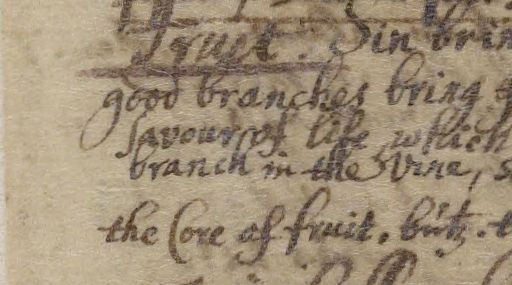 Fruit. in brin
good branches bring
savour of life which
branch in the Vine, s
the Core of fruit. but. t